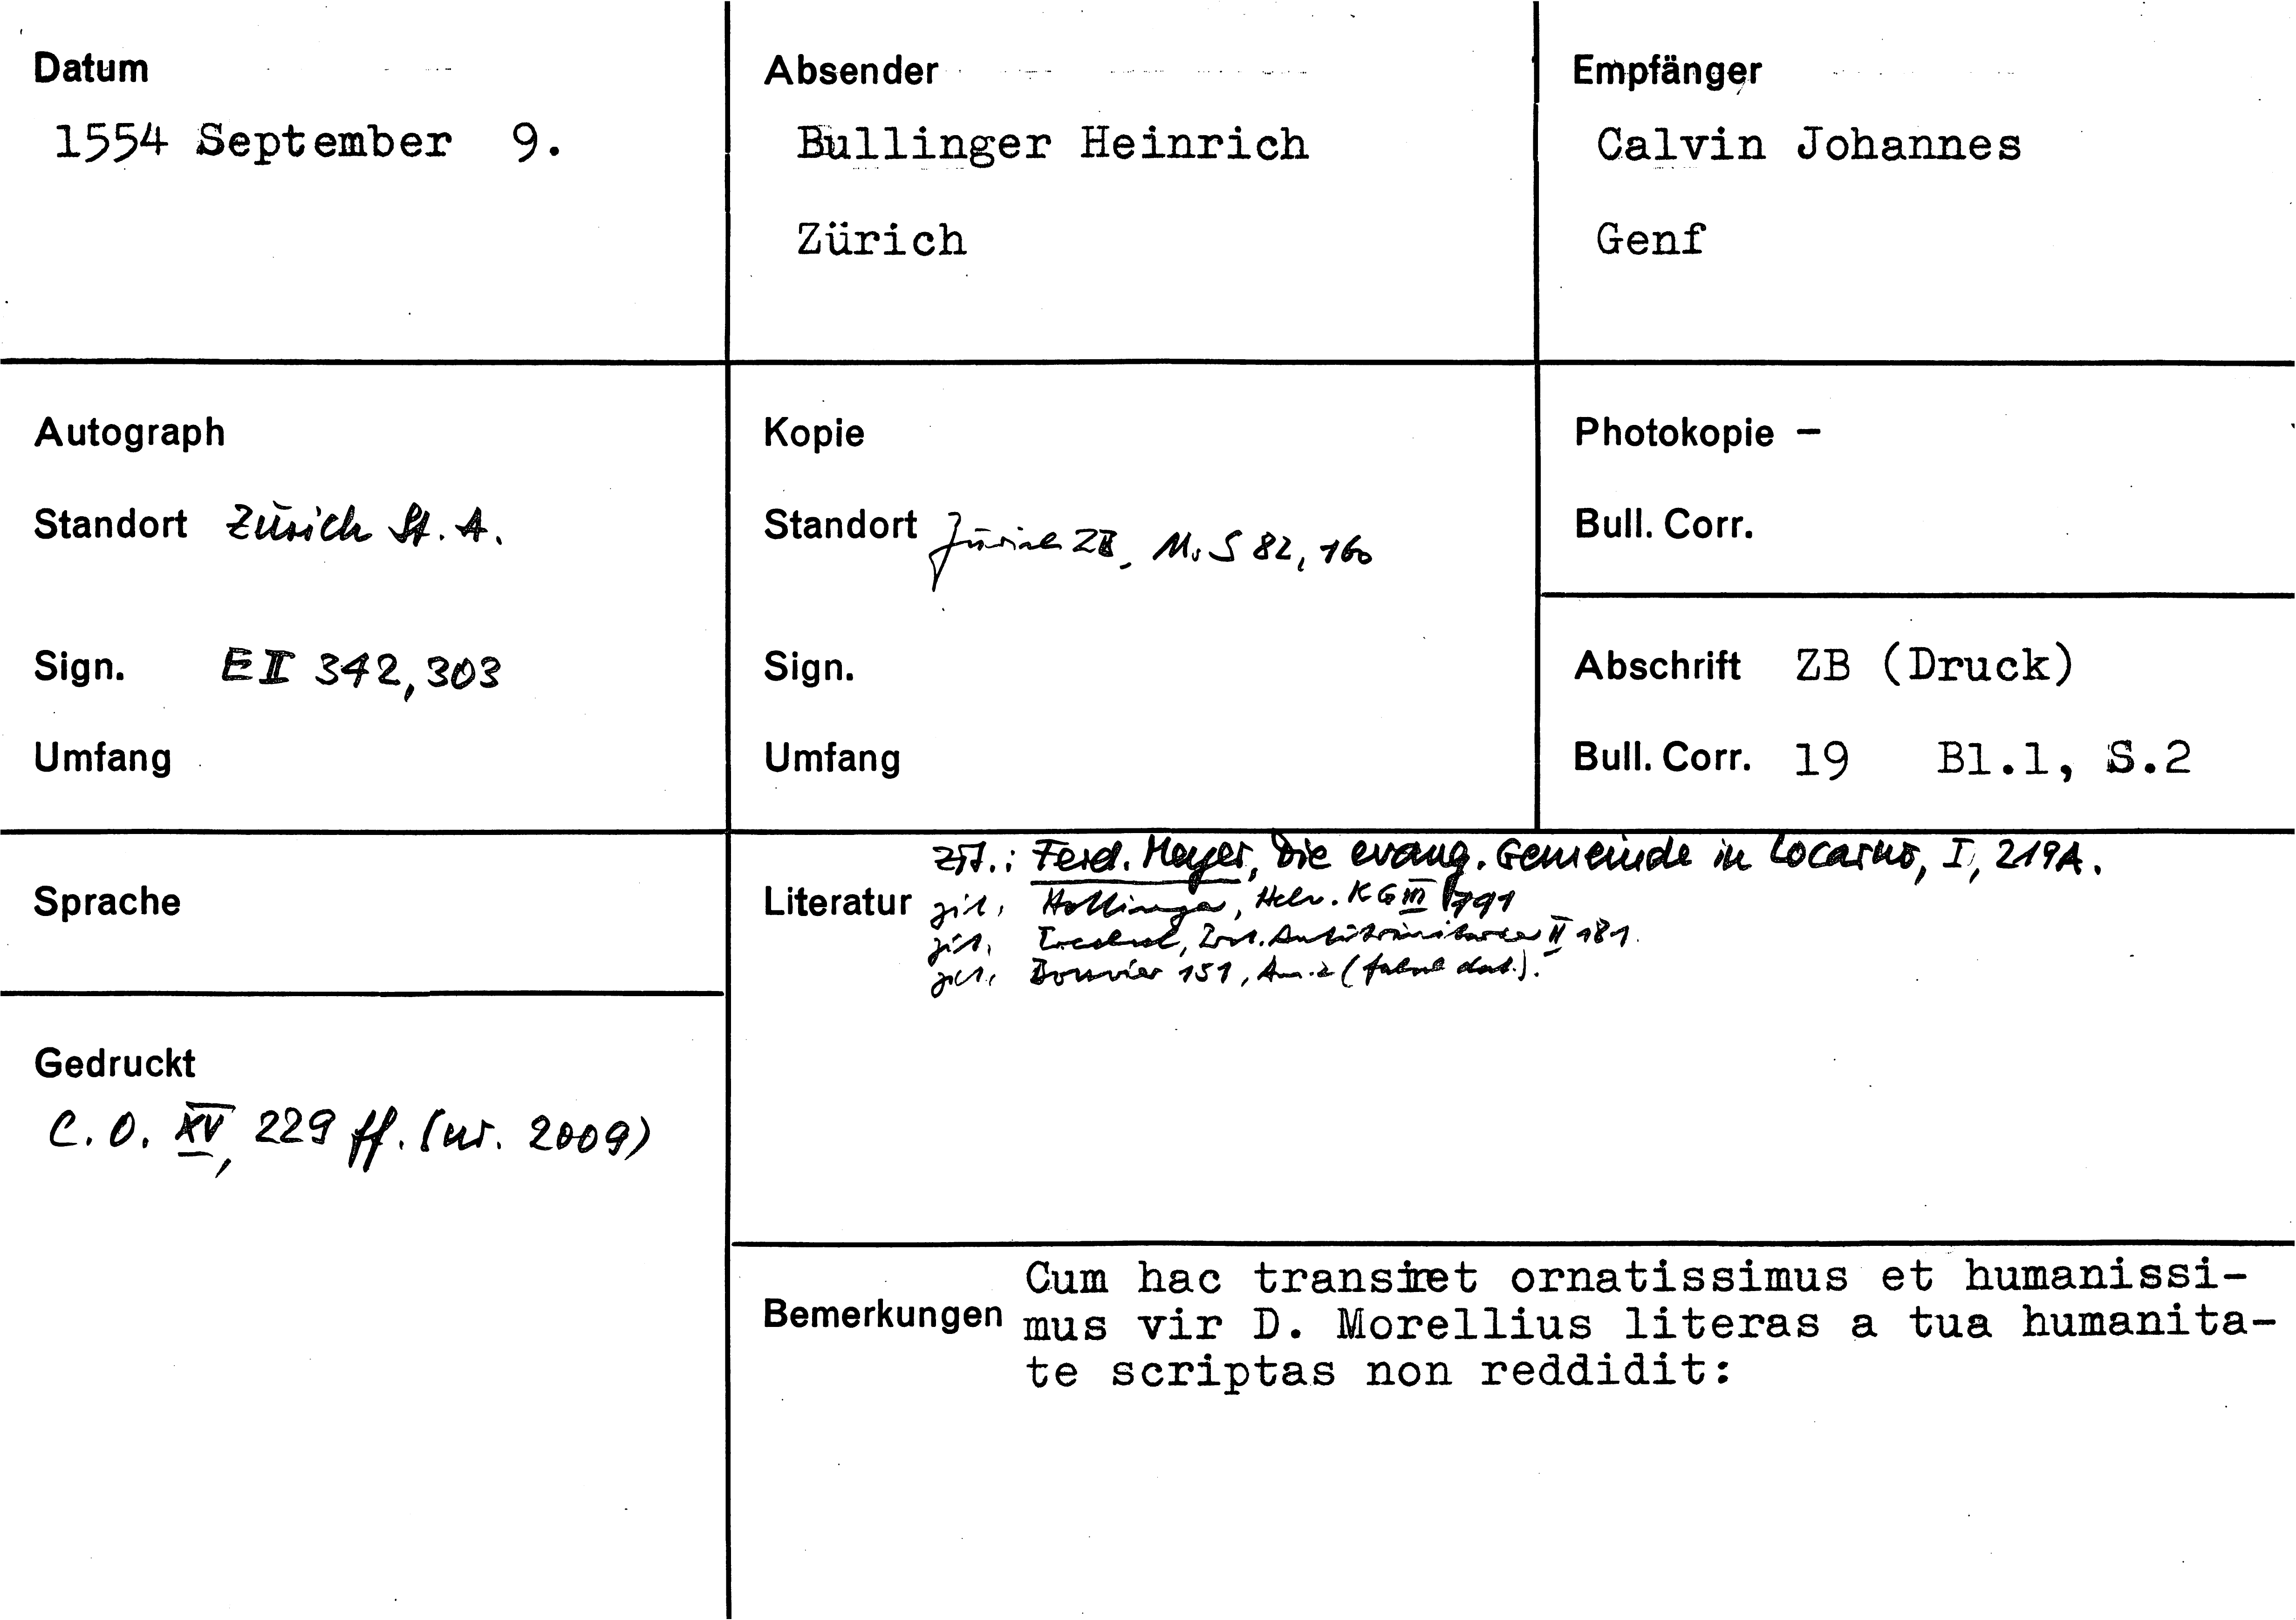 Datum
1554 September 9.
Absender
Bullinger Heinrich
Zürich
Empfänger
Calvin Johannes
Genf
Autograph
Standort Zürich St. A.
Sign. E II 342, 303
Umfang
Kopie
Standort Zürich ZB, Ms S 82, 160
Sign.
Umfang
Photokopie –
Bull. Corr.
Abschrift ZB (Druck)
Bull. Corr. 19 Bl.1, S.2
Sprache
Gedruckt
C. O. XV, 229 ff. (nr. 2009)
zit.: Ferd. Meyer, Die evang. Gemeinde in Locarno, I, 219A.
Literatur zit. Hottinger, Helv. KG III 791
zit. Trechsel, Prot. Antitrinitarier II 181.
zit. Bouvier 151, Am. 2 (falsch dat.).
Bemerkungen
Cum hac transiret ornatissimus et humanissi-
mus vir D. Morellius literas a tua humanita-
te scriptas non reddidit: